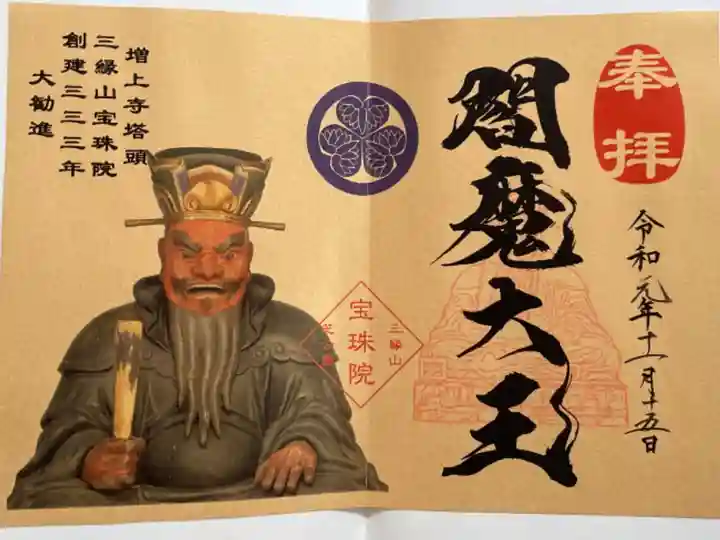 奉拝
令和元年十一月十五日
閻魔大王
三縁山
宝珠院
増上寺塔頭
三縁山宝珠院
創建三三三年
大勧進